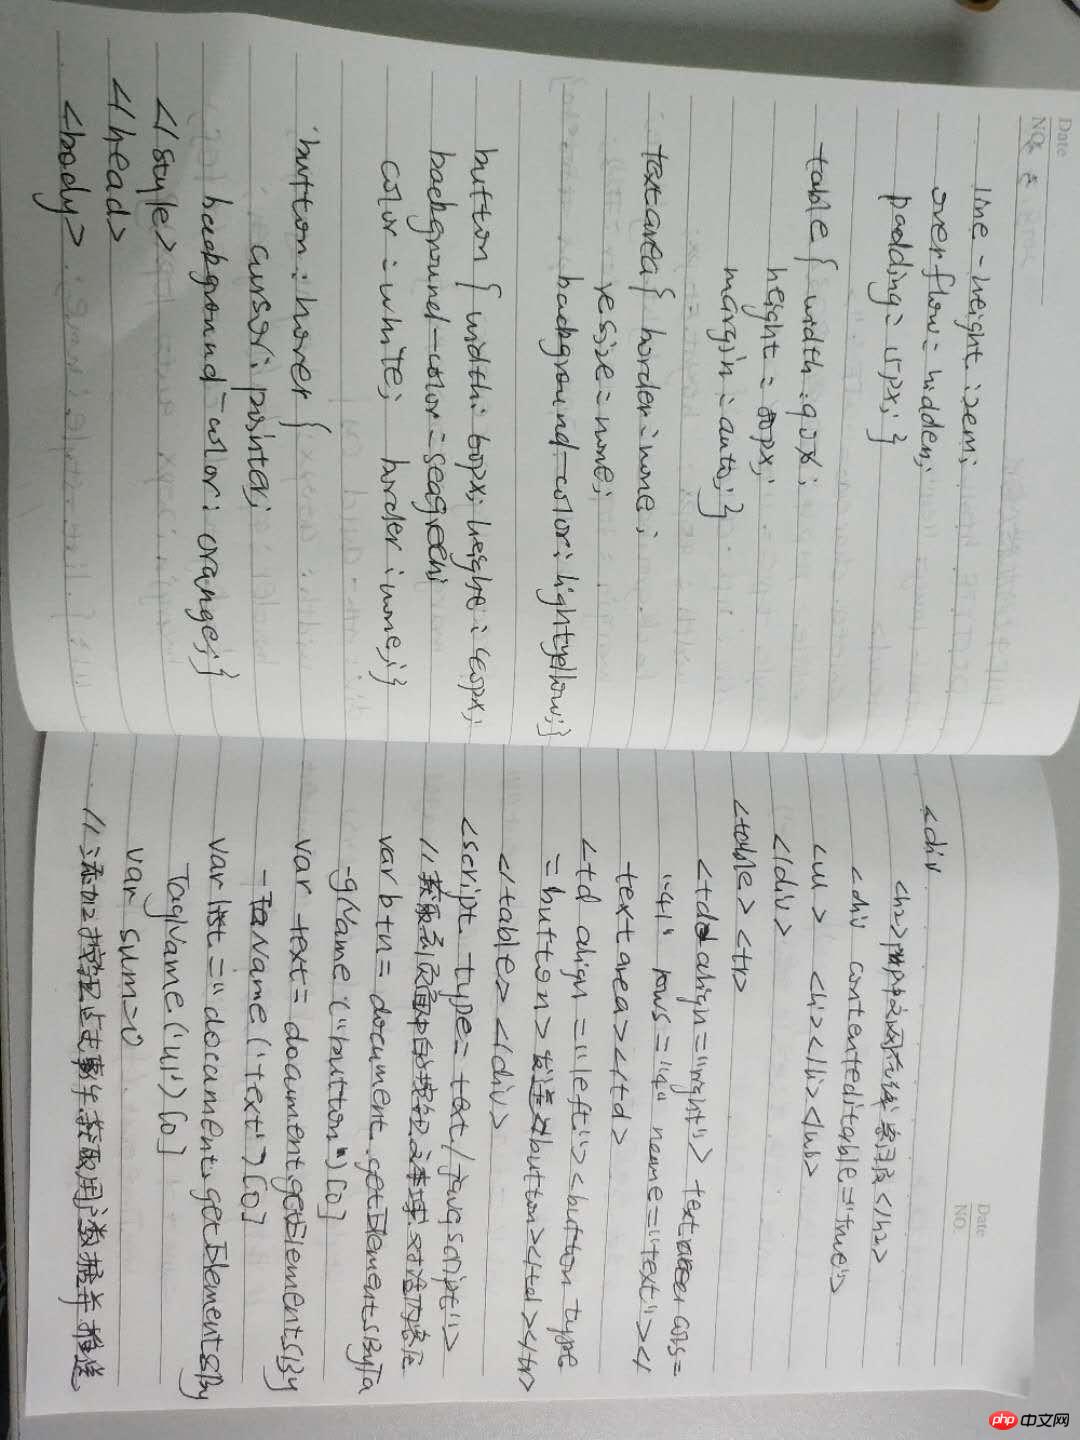 Date
NO.
line-height:2em;
overflow:hidden;
padding:15px;}
table{width:90%;
height:80px;
margin:auto;}
textarea{border:none;
resize:none;
background-color:lightyellow;}
button{width:60px;height:40px;
background-color:seagreen
color:white; border:none;}
button:hover{
cursor:pointer;
background-color:orange;}
</style>
</head>
<body>
Date
NO.
<div
<h2>php中文网在线 </h2>
<div contenteditable="true">
<ul> <li></li></ub>
</div>
<table><tr>
<td align="right"> textarea cols=
"41" rows="4" name="text"></
textarea></td>
<td align="left"><button type
=button> 发送</button></td></tr>
</table></div>
<script type=text/javascript">
//获取到页面中的按钮,文本域,对话内容区
var btn=document.getElementsByTa
-gName("button")[0]
var text=document.getElementsBy
-Name('text')[0]
var list="document.getElementsBy
TagName('ul')[0]
var sum=0
//添加按钮点击事件,获取用户数据并推送
php中文网